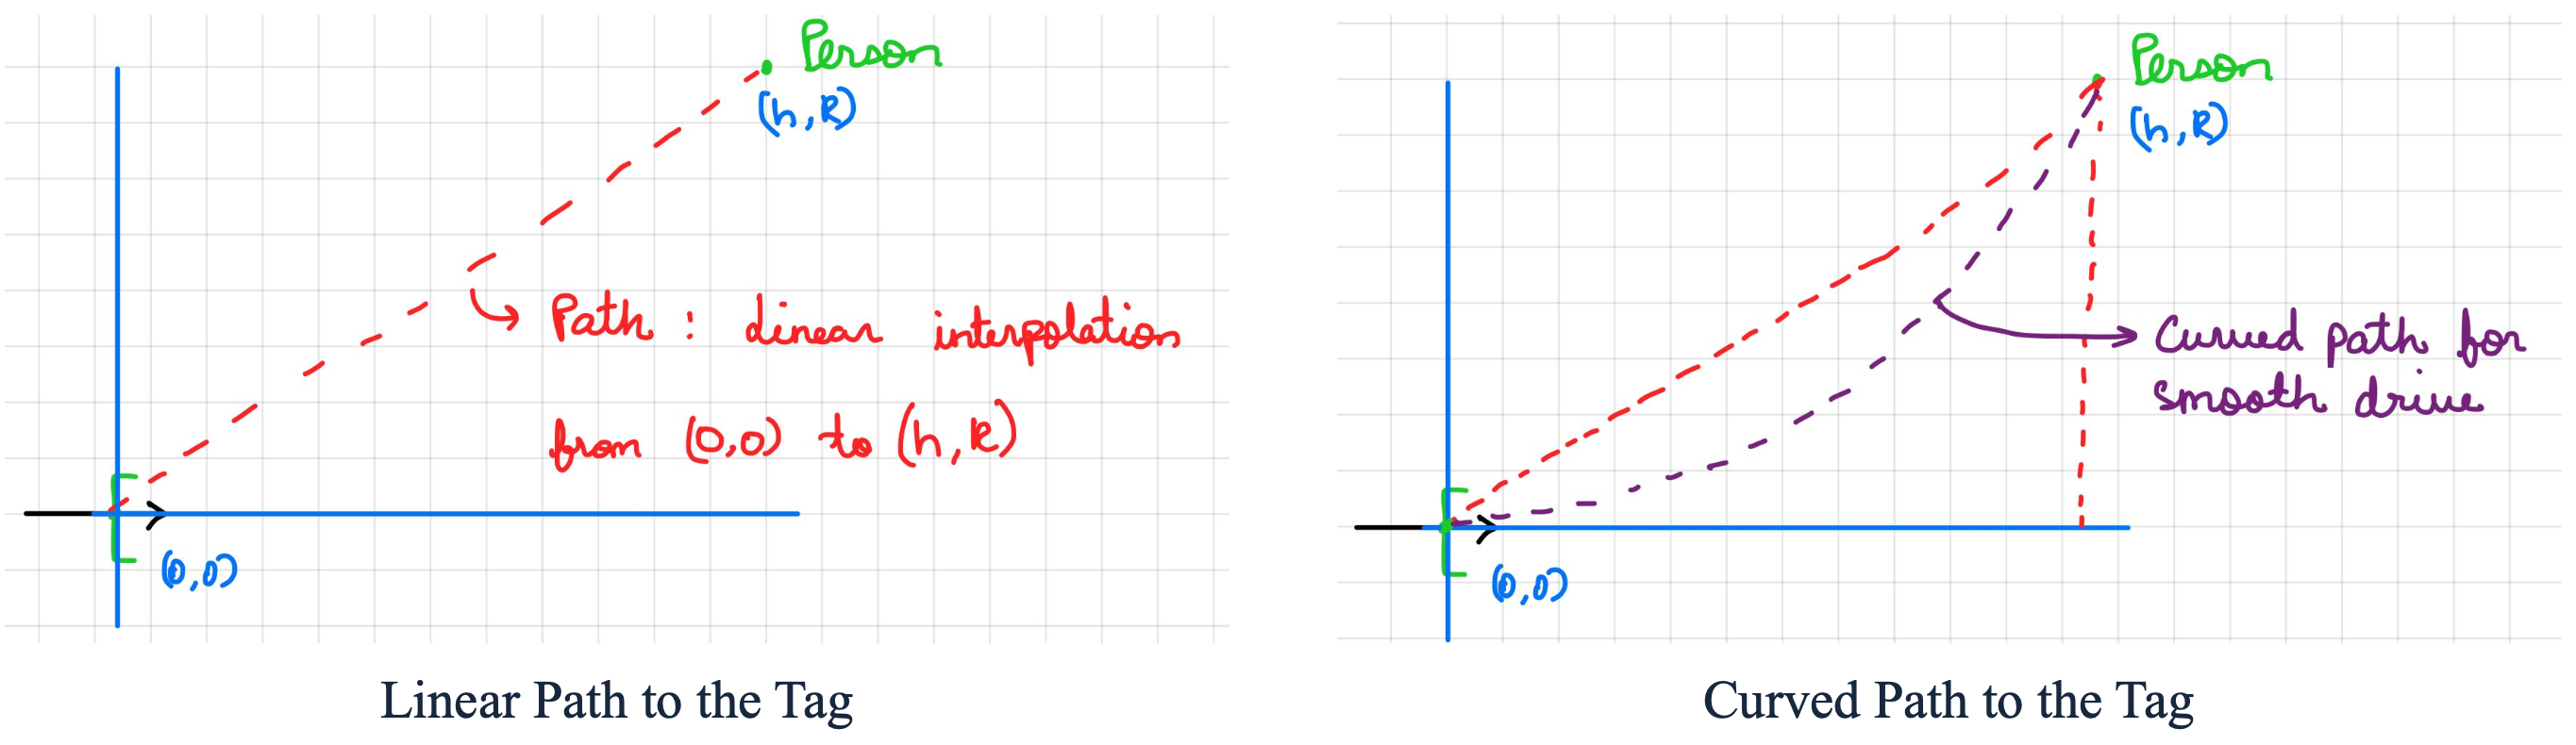 Person
(h,k)
Path : Linear interpolation
from (0,0) to (h,k)
(0,0)
Linear Path to the Tag
Person
(h,k)
Curved path for
smooth drive
(0,0)
Curved Path to the Tag